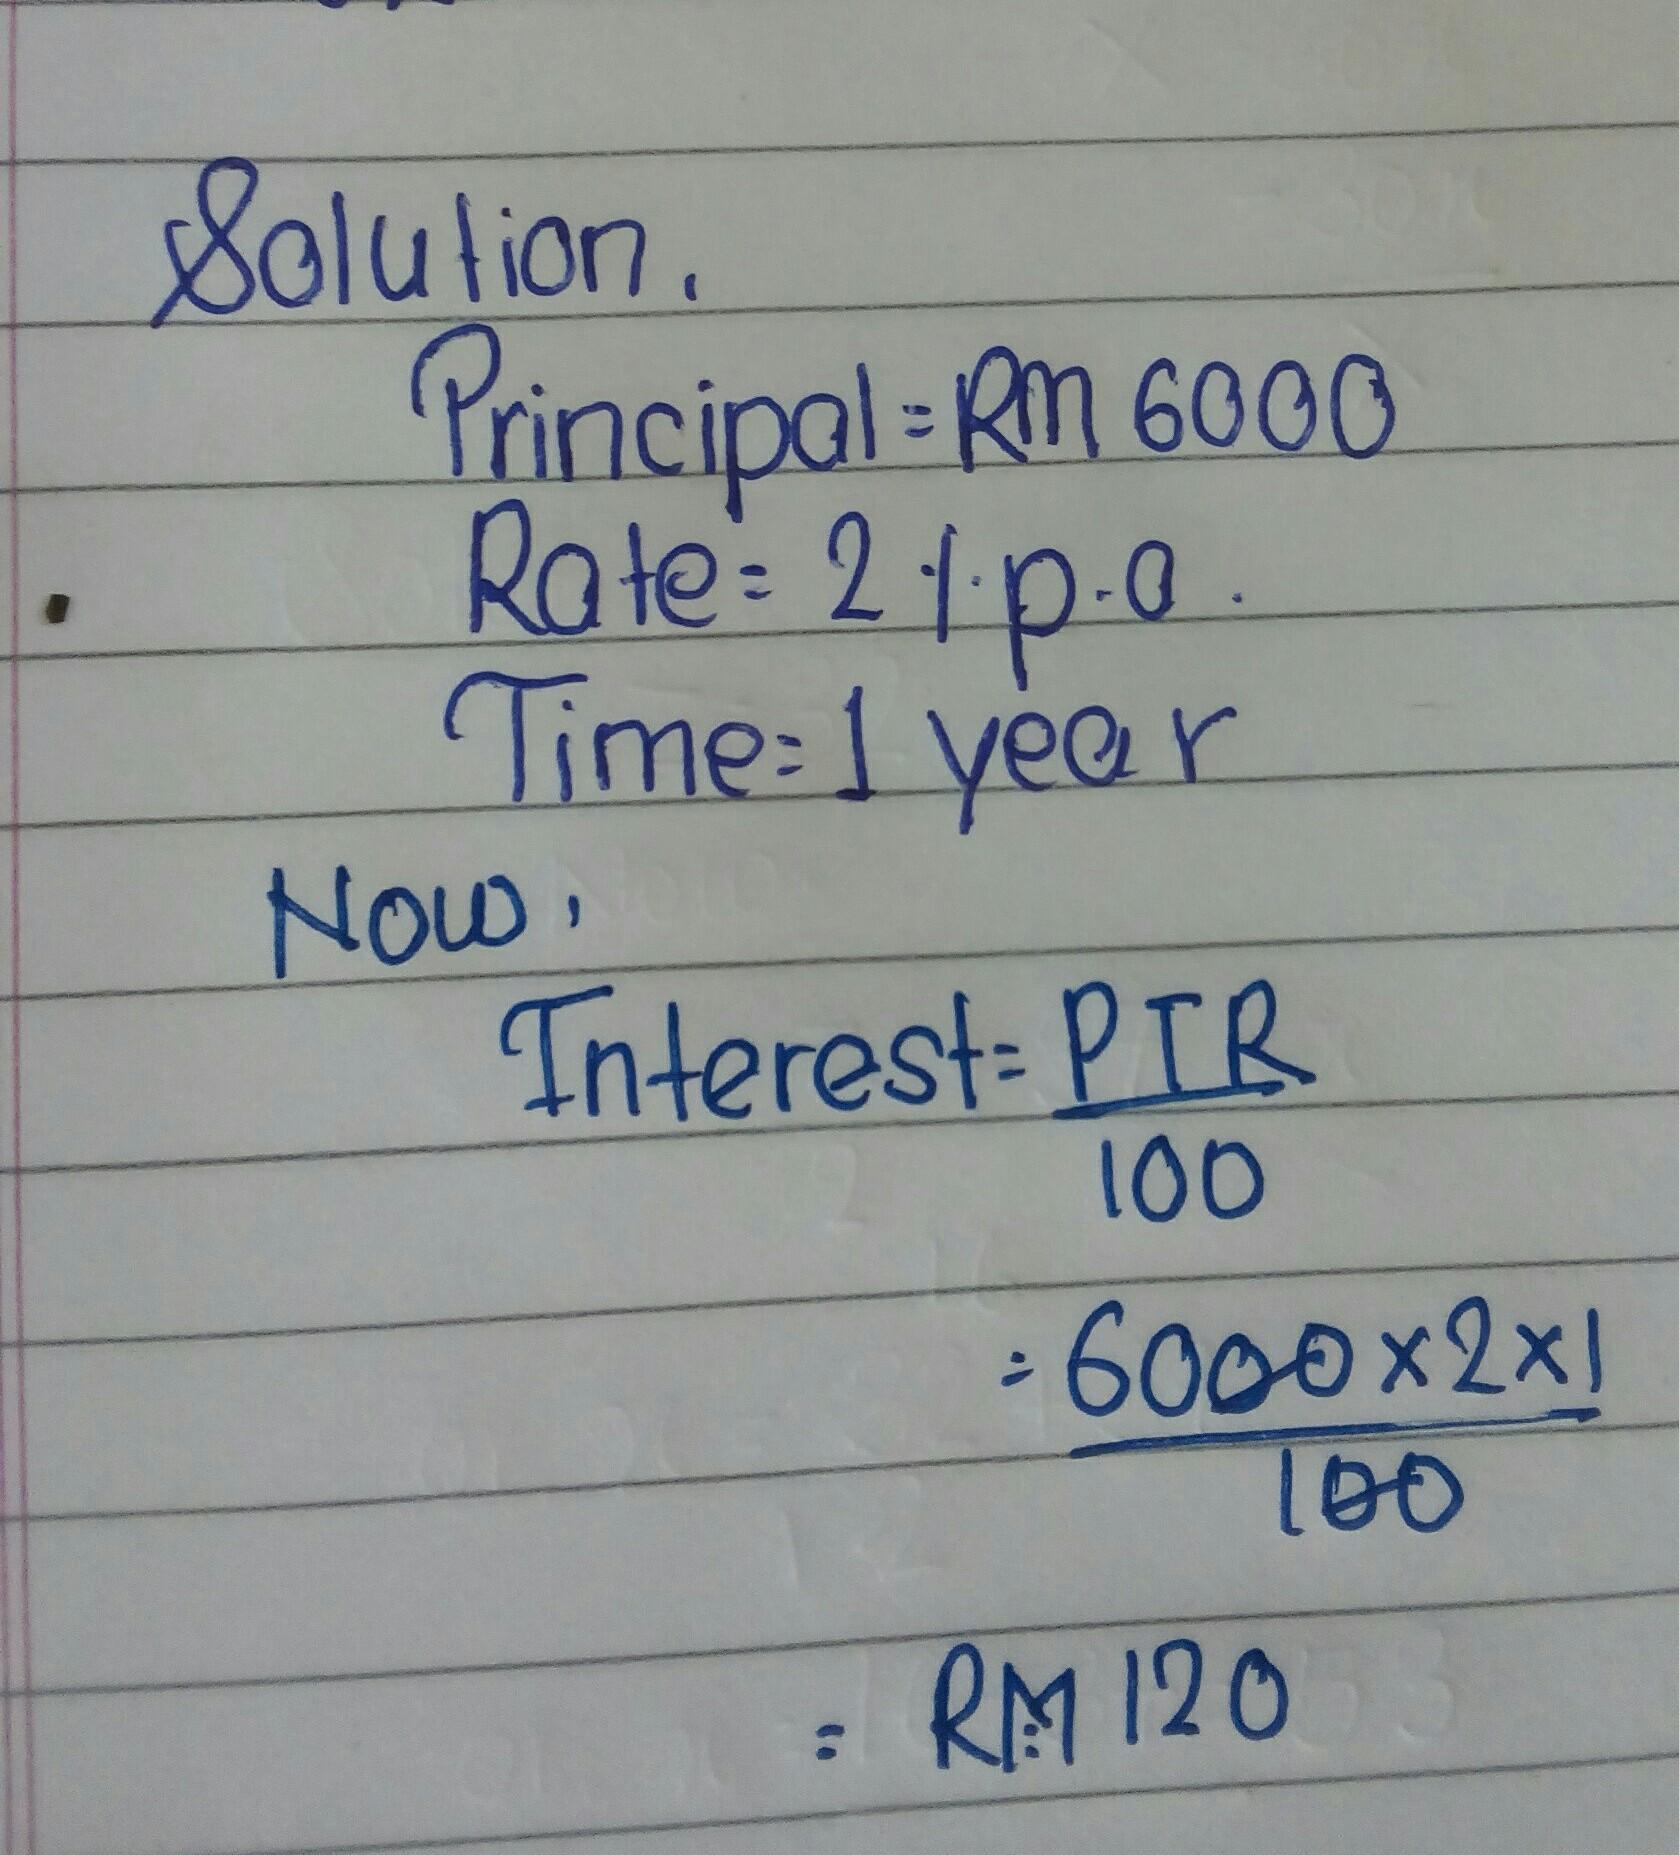 Solution.
Principal = RM 6000
Rate = 2 % p.a.
Time = 1 year
Now,
Interest = PTR
100
= 6000 x 2 x 1
100
= RM 120